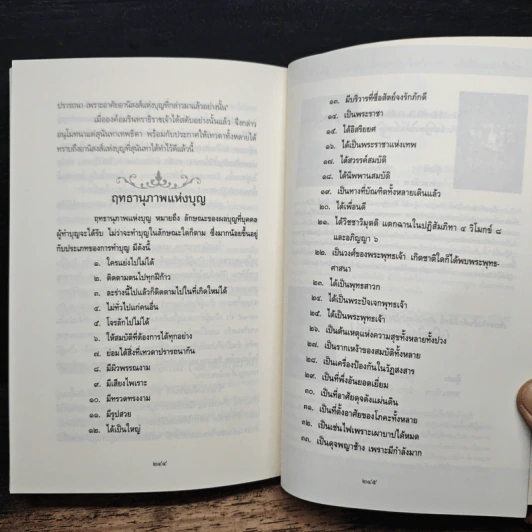 ปรารถนา เพราะอาศัยอานิสงส์แห่งบุญที่กล่าวมาแล้วอย่างนั้น"
เมื่อองค์อมรินทราธิราชเจ้าได้สดับอย่างนั้นแล้ว จึงกล่าว
อนุโมทนาแด่สุนันทาเทพธิดา พร้อมกับประกาศให้เทวดาทั้งหลายได้
ทราบถึงอานิสงส์แห่งบุญที่สุนันทาได้ทำไว้ดีแล้วนี้
ฤทธานุภาพแห่งบุญ
ฤทธานุภาพแห่งบุญ หมายถึง ลักษณะของผลบุญที่บุคคล
ผู้ทำบุญจะได้รับ ไม่ว่าจะทำบุญในลักษณะใดก็ตาม ซึ่งมากน้อยขึ้นอยู่
กับประเภทของการทำบุญ มีดังนี้
๑. ใครแย่งไปไม่ได้
๒. ติดตามตนไปทุกฝีก้าว
๓. ละร่างนี้ไปแล้วก็ติดตามไปในที่เกิดใหม่ได้
๔. ไม่ทั่วไปแก่คนอื่น
๕. โจรลักไปไม่ได้
๖. ให้สมบัติที่ต้องการได้ทุกอย่าง
๗. ย่อมได้สิ่งที่เทวดาปรารถนากัน
๘. มีผิวพรรณงาม
๙. มีเสียงไพเราะ
๑๐. มีทรวดทรงงาม
๑๑. มีรูปสวย
๑๒. ได้เป็นใหญ่
๒๔๔
๑๓. มีบริวารที่ซื่อสัตย์จงรักภักดี
๑๔. เป็นพระราชา
๑๕. ได้อิสริยยศ
๑๖. ได้เป็นพระราชาแห่งเทพ
๑๗. ได้สวรรค์สมบัติ
๑๘. ได้นิพพานสมบัติ
๑๙. เป็นทางที่บัณฑิตทั้งหลายเดินแล้ว
๒๐. ได้เพื่อนดี
๒๑. ได้วิชชาวิมุตติ แตกฉานในปฏิสัมภิทา ๔ วิโมกข์ ๘
และอภิญญา ๖
๒๒. เป็นวงศ์ของพระพุทธเจ้า เกิดชาติใดก็ได้พบพระพุทธ-
ศาสนา
๒๓. ได้เป็นพุทธสาวก
๒๔. ได้เป็นพระปัจเจกพุทธเจ้า
๒๕. ได้เป็นพระพุทธเจ้า
๒๖. เป็นต้นเหตุแห่งความสุขทั้งหลายทั้งปวง
๒๗. เป็นรากเหง้าของสมบัติทั้งหลาย
๒๘. เป็นเครื่องป้องกันในวัฏสงสาร
๒๙. เป็นที่พึ่งอันยอดเยี่ยม
๓๐. เป็นที่อาศัยดุจดังแผ่นดิน
๓๑. เป็นที่ตั้งอาศัยของโภคะทั้งหลาย
๓๒. เป็นเช่นไฟเพราะเผาบาปได้หมด
๓๓. เป็นดุจพญาช้าง เพราะมีกำลังมาก
๒๔๕